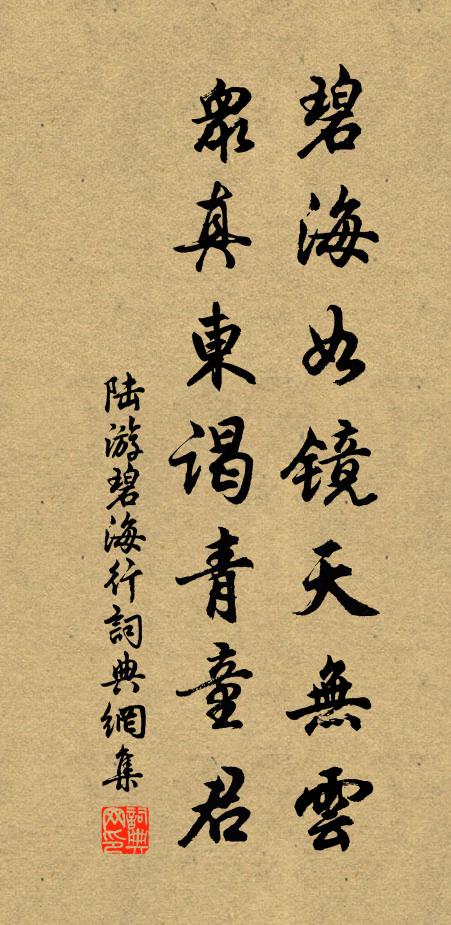 碧海如镜天無雲
衆真東谒青童君
陆游碧海行詞典網集
詞典网印